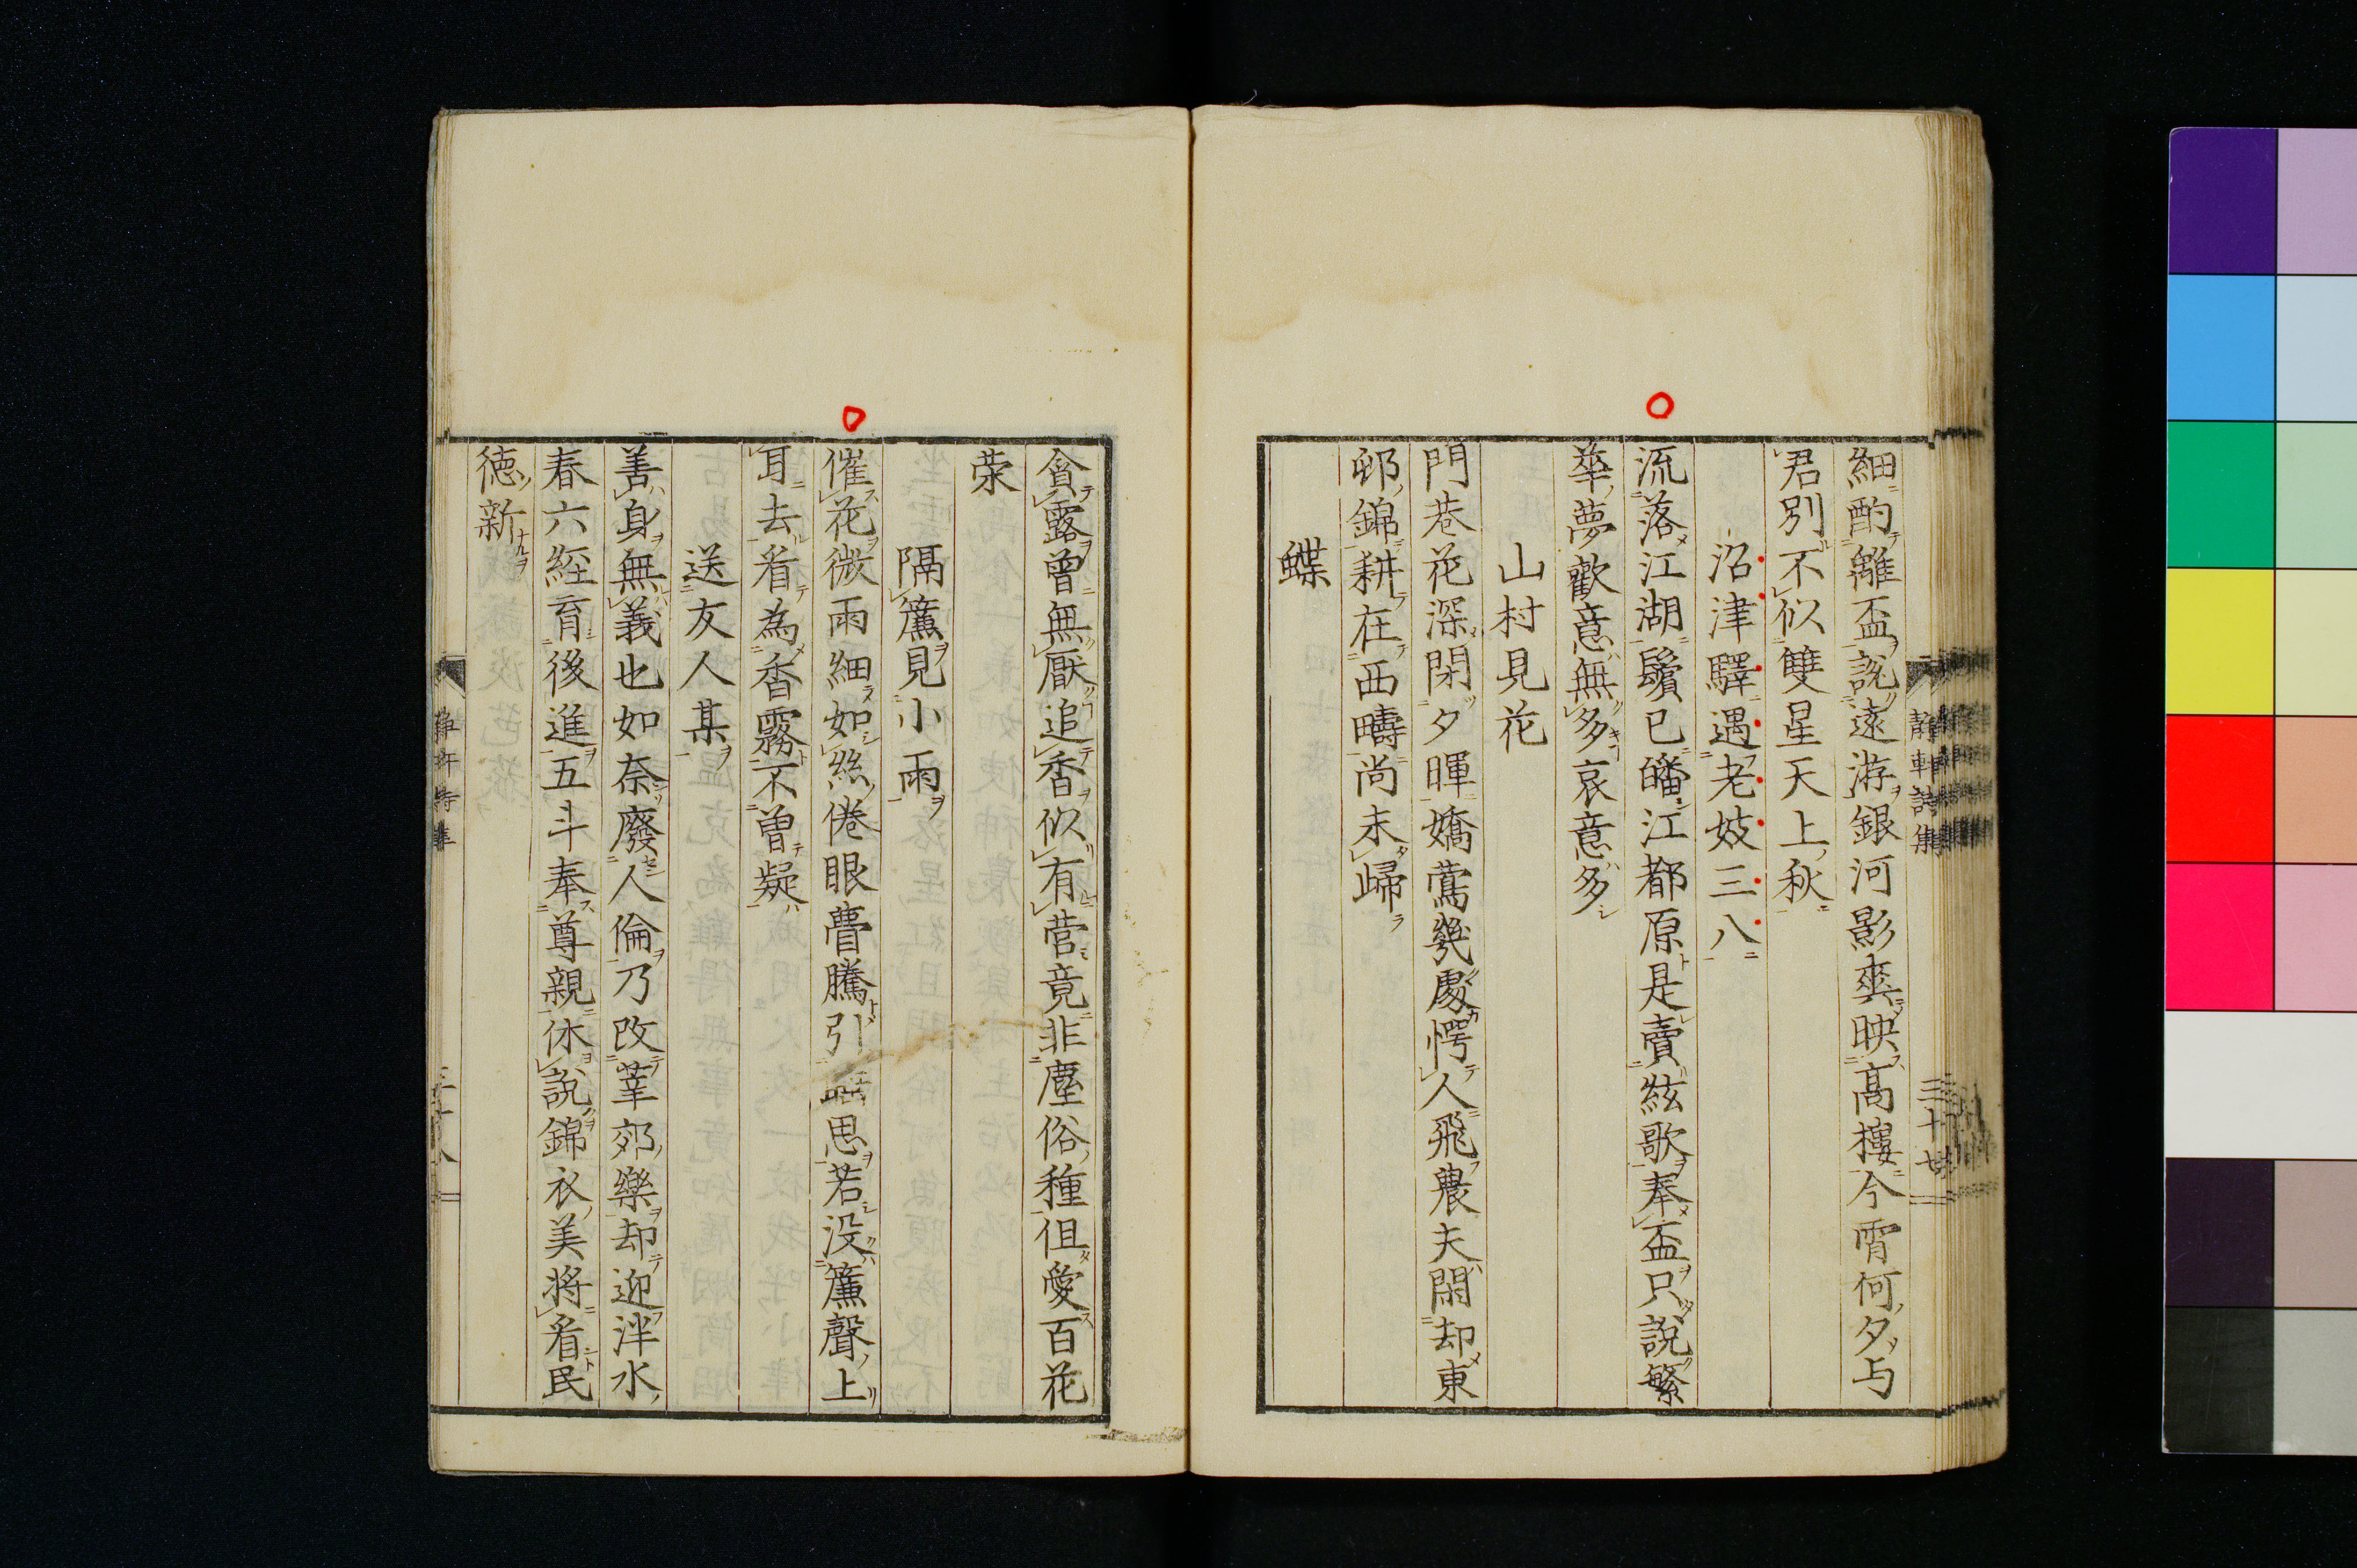 細酌離盃說遠游銀河影爽映高樓今霄何夕与
君別不似雙星天上秋
沼津驛遇老妓三八
流落江湖鬢已皤江都原是賣絃歌奉盃只說繁
華夢歡意無多哀意多
山村見花
門巷花深閉夕暉嬌鶯幾處愕人飛農夫閙却東
邨錦耕在西疇尚未歸
蝶
貪露曾無厭追香似有营竟非塵俗種但愛百花
荣
隔簾見小雨
催花微雨細如絲倦眼瞢騰引思若没簾聲上
耳去看為香霧不曽疑
送友人某
善身無義也如奈廢人倫乃改莘郊樂却迎泮水
春六経育後進五斗奉尊親休說錦衣美将看民
徳新